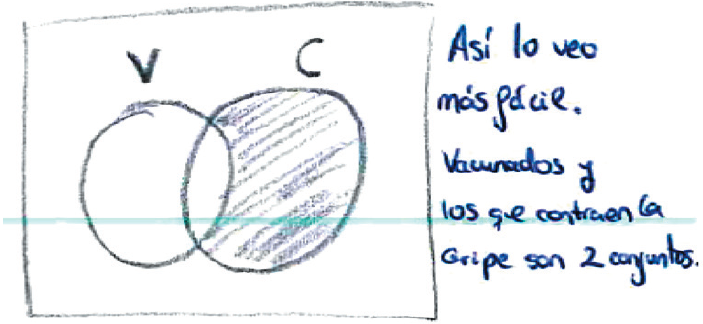 V C
Así lo veo
más fácil.
Vacunados y
los que contraen la
Gripe son 2 conjuntos.